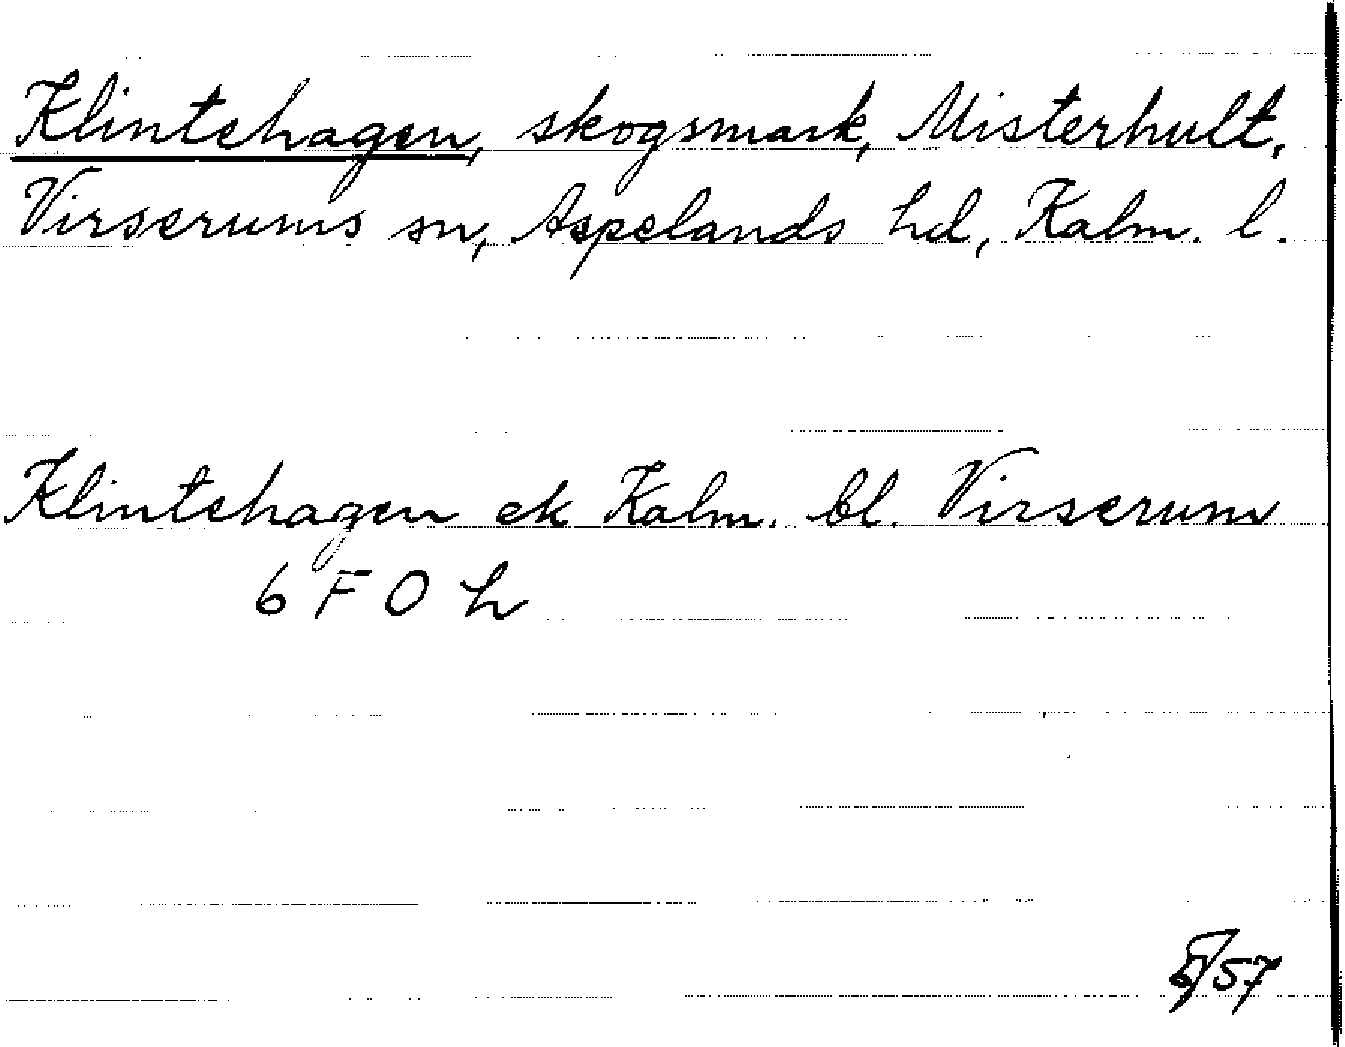 Klintehagen, skogsmark, Misterhult,
Virserums sn, Aspelands hd, Kalm. l.
Klintehagen ek Kalm. bl. Virserum
6 F 0 h
/57